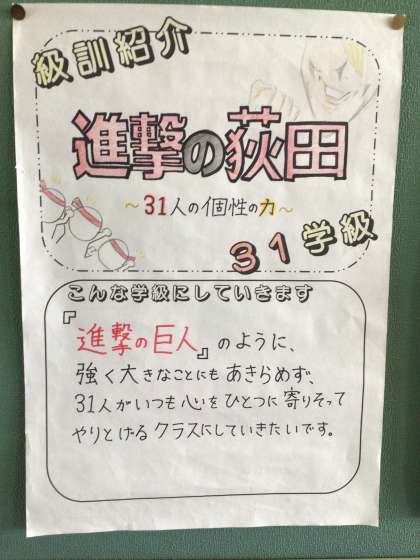 級訓紹介
進撃の荻田
～31人の個性の力～
31学級
こんな学級にしていきます
『進撃の巨人』のように、
強く大きなことにもあきらめず、
31人がいつも心をひとつに寄りそって
やりとげるクラスにしていきたいです。